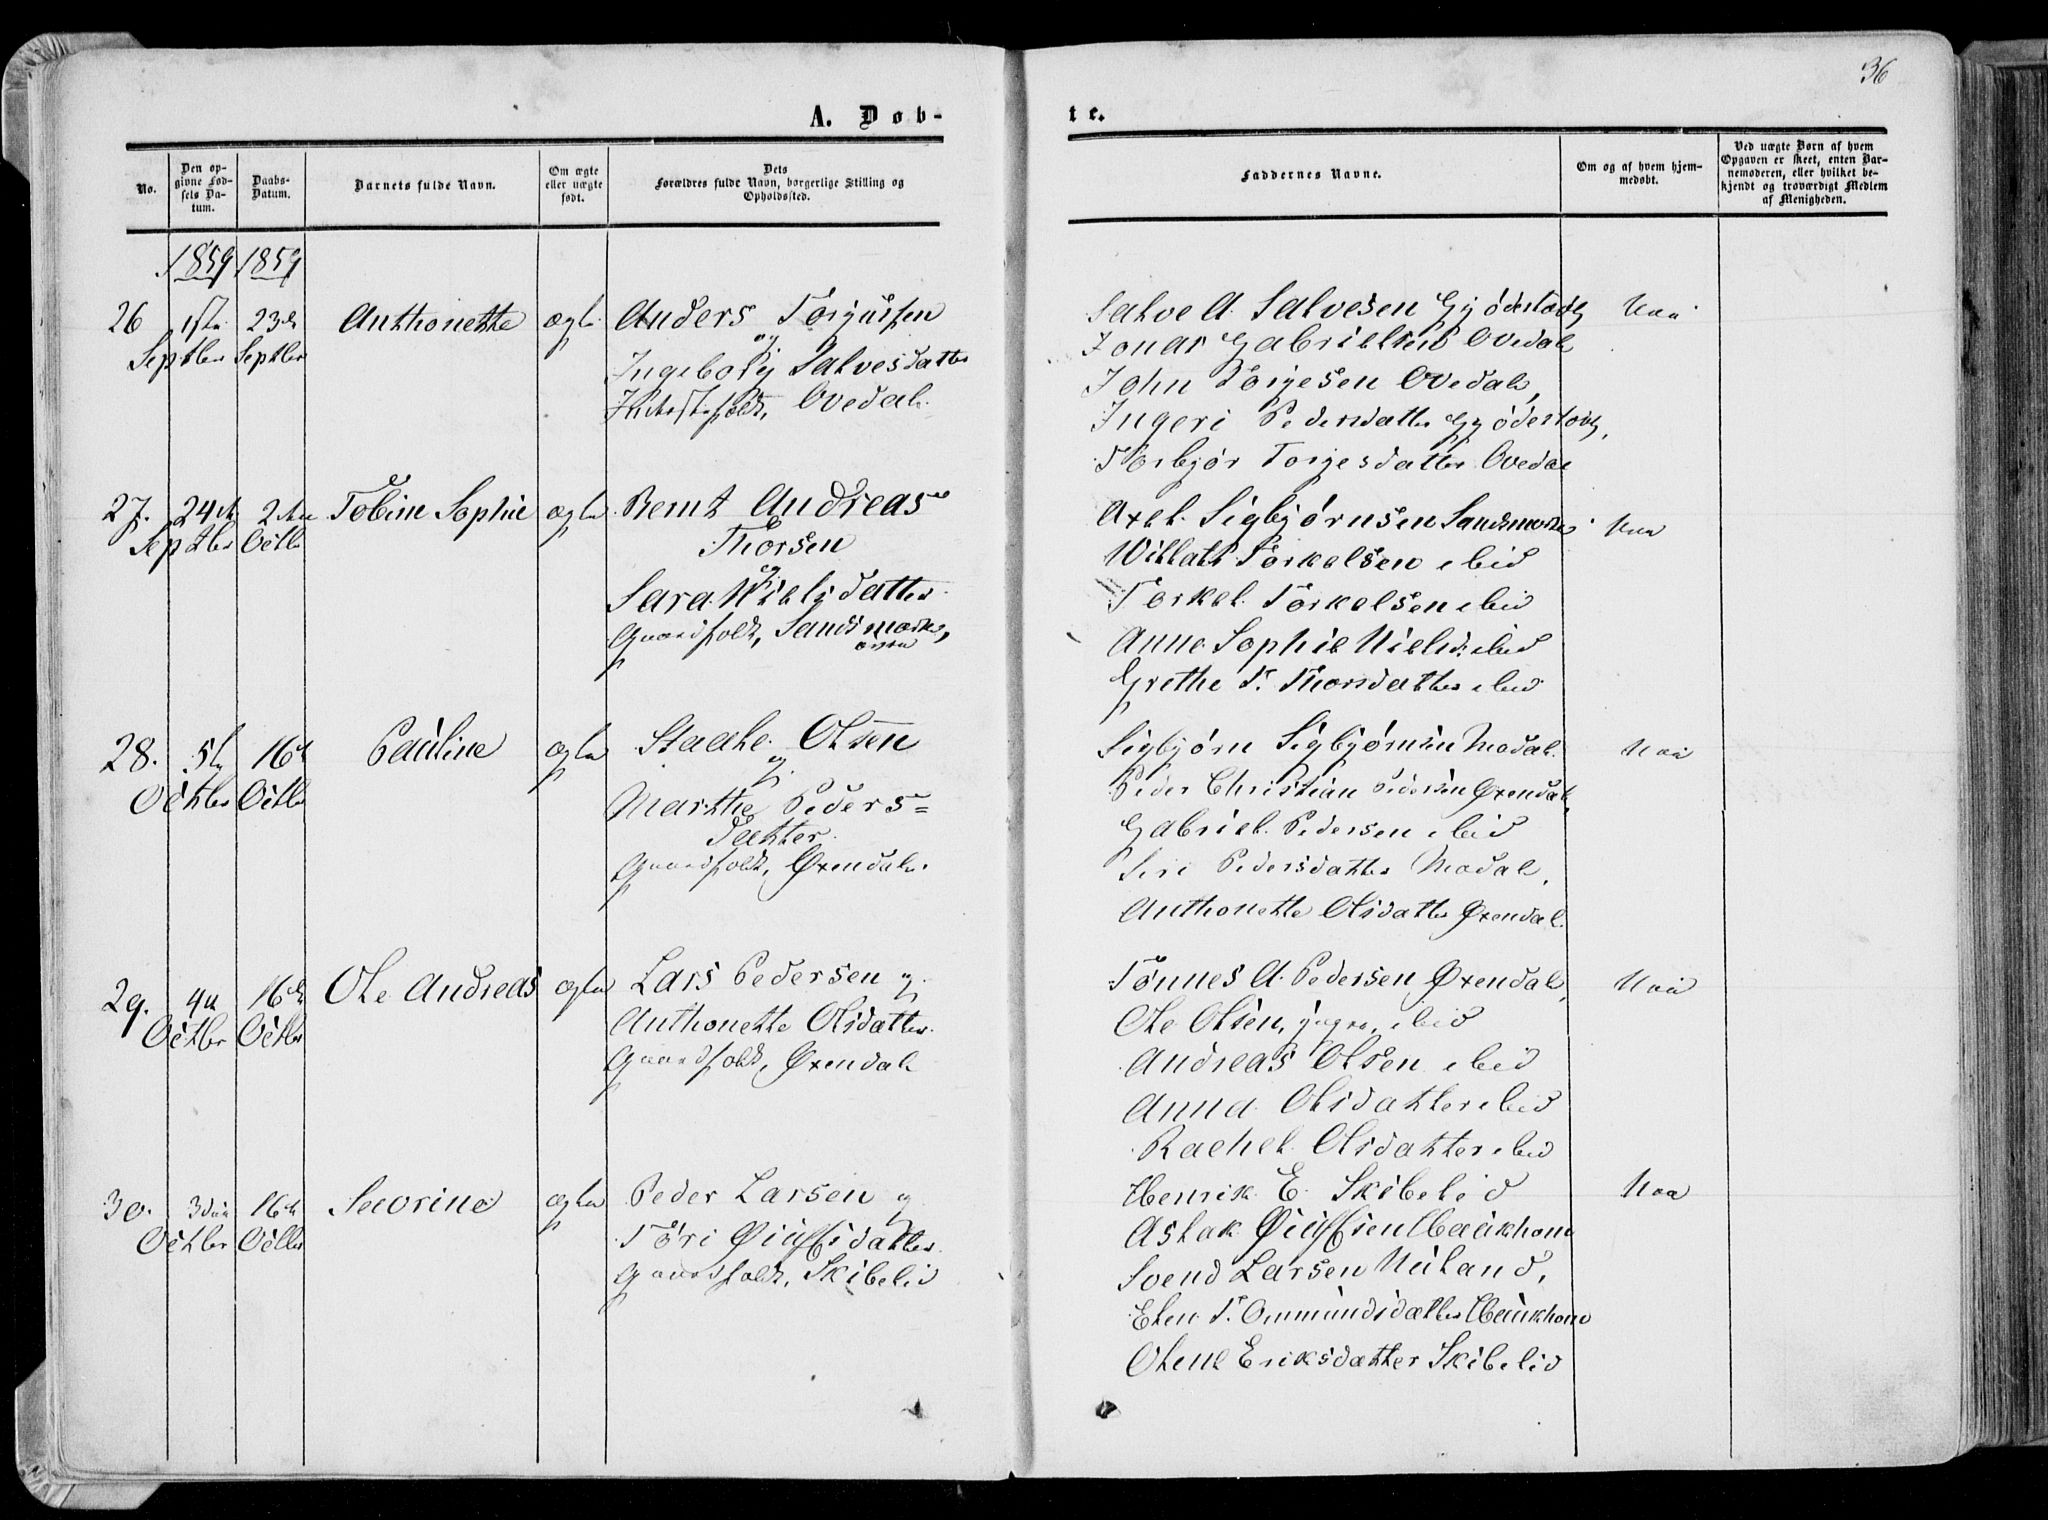 36
A. Døb-
te.
No.
Den op-
givne Fød-
sels Da-
tum.
Daabs-
Datum.
Barnets fulde Navn.
Om ægte
eller uægte
født.
Dets
Forældres fulde Navn, borgerlige Stilling og
Opholdssted.
Faddernes Navne.
Om og af hvem hjem-
medøbt.
Ved uægte Børn af hvem
Opgaven er skeet, enten Bar-
nemoderen, eller hvilket be-
kjendt og troværdigt Medlem
af Menigheden.
1859 1859
26 1ste 23de Anthonette ægte Anders Torjussen
Septbr Septbr og
Ingeborg Salvesdatter
Ovedal.
Salve A. Salvesen Gyðestøl
Jonas Gabrielsen Ovedal
John Torjesen Ovedal,
Ingeri Pedersdatter
Torbjør Torjesdatter Ovedal
Naa
27. 24de 2den Tobine Sophie ægte Bernt Andreas
Septbr Octbr Thorsen
og
Sara Nielsdatter
Gaardfolk, Sandsmark,
øvre
Axel Sigbjørnsen Sandsmark
Torkelsen ibid
Torkel Torkelsen ibid
Anne Sophie Nielsd: ibid
Grethe T. Thorsdatter ibid
Naa
28. 5te 16de Pauline ægte Staale Olsen
Octbr Octbr og
Marthe Peders=
datter
Gaardfolk, Øxendal.
Sigbjørn Sigbjørnsen Modal
Peder Christian Pedersen Øxendal,
Gabriel Pedersen ibid
Siri Pedersdatter Modal,
Anthonette Olsdatter Øxendal
Naa
29. 4de 16de Ole Andreas ægte Lars Pedersen og
Octbr Octbr Anthonette Olsdatter
Gaardfolk, Øxendal
Tønnes A. Pedersen Øxendal,
Ole Olsen, yngre, ibid
Andreas Olsen ibid
Anna Olsdatter ibid
Rachel Olsdatter ibid
Naa
30. 3die 16de Severine ægte Peder Larsen og
Octbr Octbr Tori datter
Gaardfolk, Skibelid
Henrik E. Skibelid
Aslak Haukhom
Svend Larsen Nuland,
Elen T. Ommundsdatter Haukhom
Olene Eriksdatter Skibelid
Naa